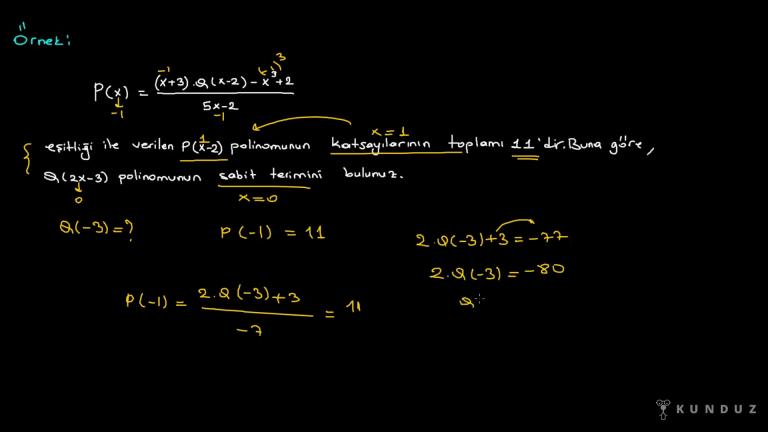 Örnek:
P(x) = (x+3).Q(x-2) - x³+2 / 5x-2
-1 -1 (-1)³ -1
eşitliği ile verilen P(x-2) polinomunun katsayılarının toplamı 11'dir. Buna göre,
1 x=1
Q(2x-3) polinomunun sabit terimini bulunuz.
0 x=0
Q(-3)=?
P(-1) = 11
2.Q(-3)+3 = -77
2.Q(-3) = -80
Q
P(-1) = 2.Q(-3)+3 / -7 = 11
KUNDUZ